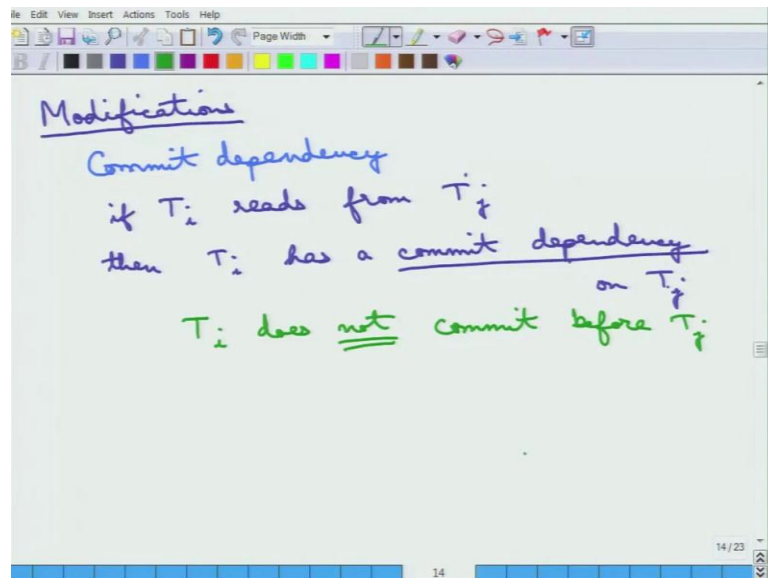 ile Edit View Insert Actions Tools Help
Page Width
B I
Modifications
Commit dependency
if Ti reads from Tj
then Ti has a commit dependency
on Tj
Ti does not commit before Tj
14/23
14